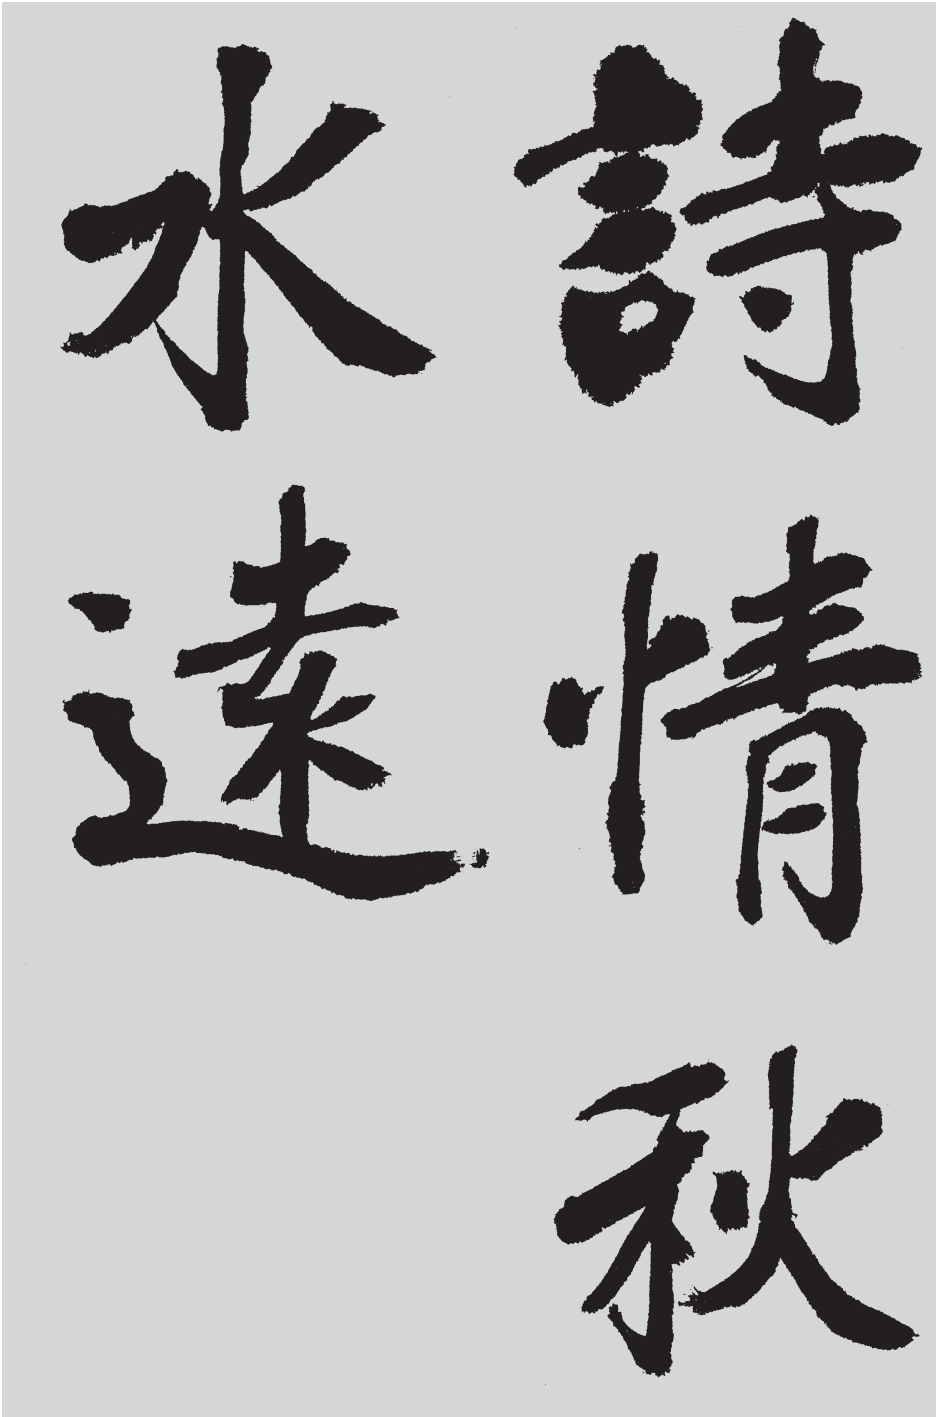 詩情秋
水遠